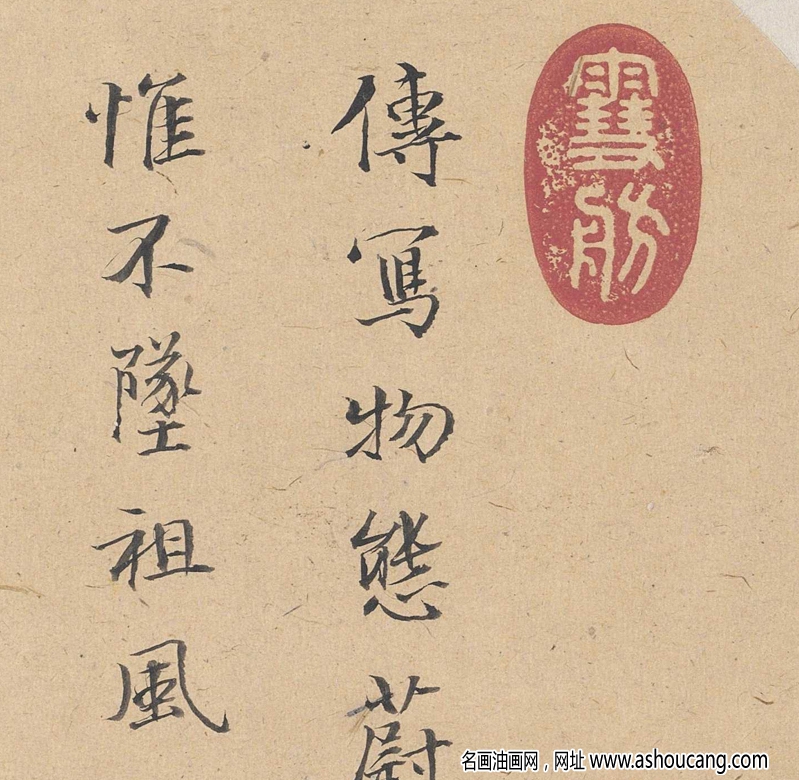 雪舫
傳寫物態蔚
惟不墜祖風
名画油画网，网址 www.ashoucang.com